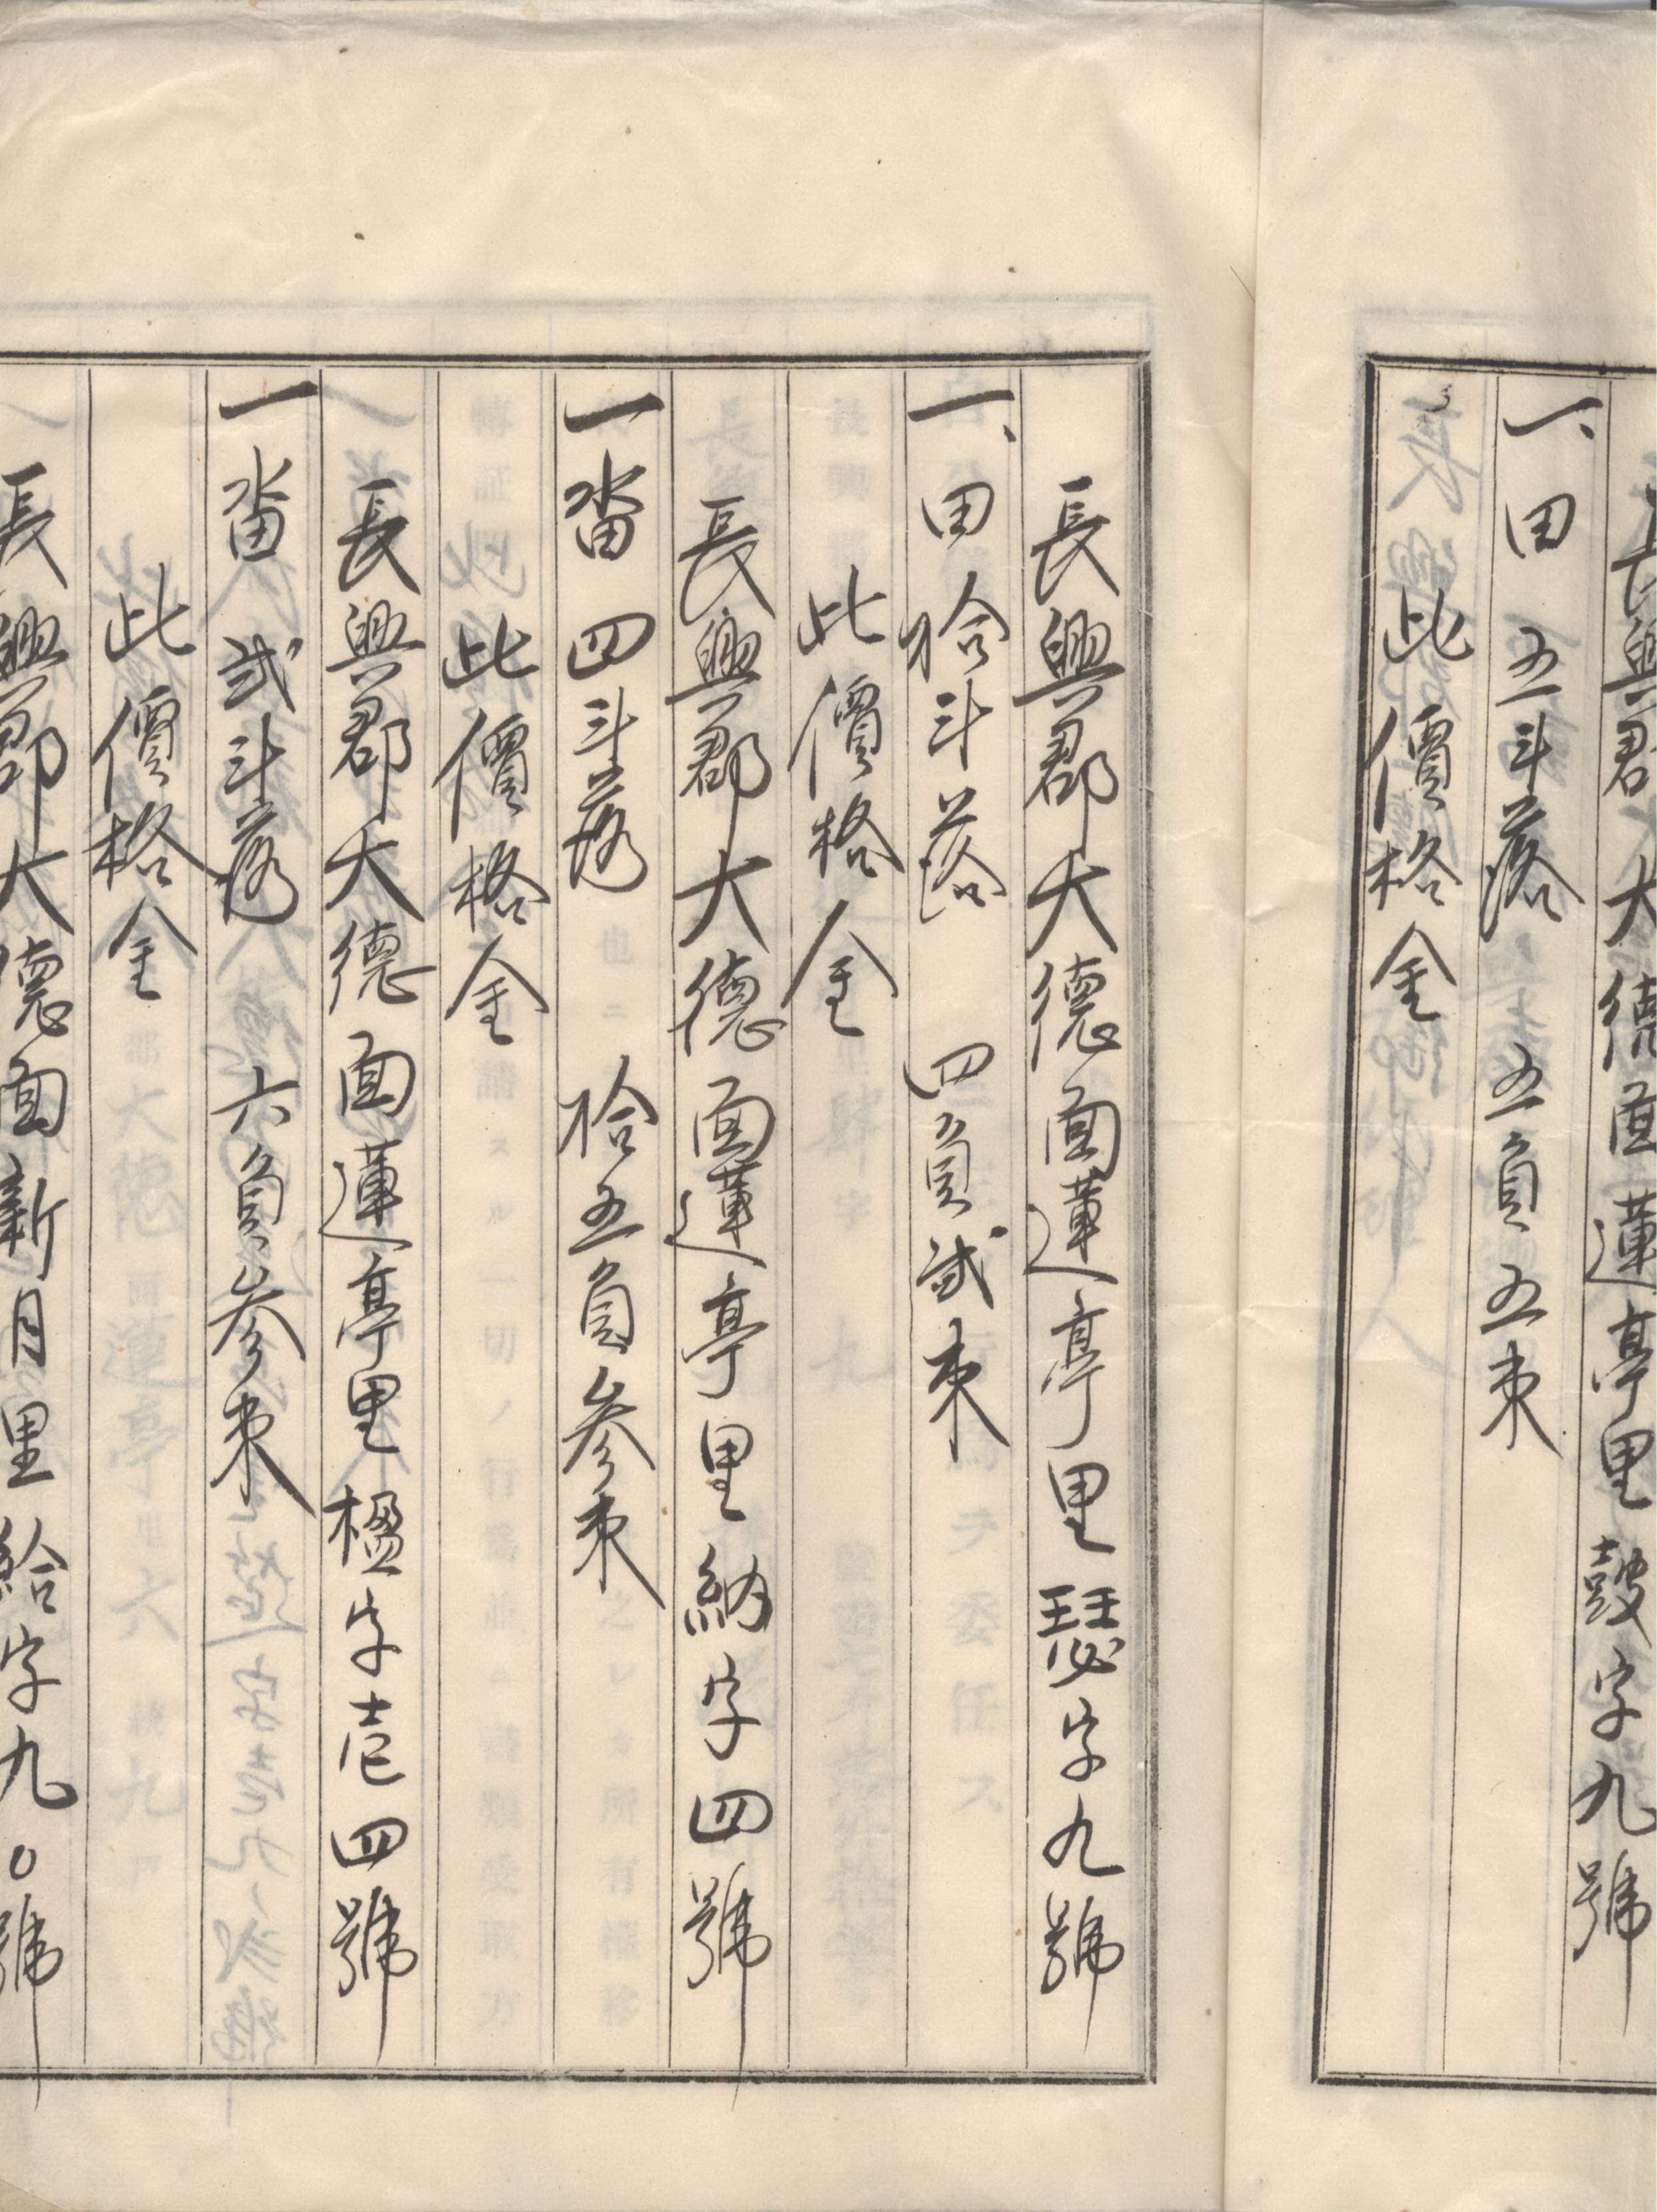 長興郡大德面蓮亭里鼓字九號
一、田 五斗落 五負五束
此價格金
長興郡大德面蓮亭里瑟字九號
一、田拾斗落 四負貳束
此價格金
長興郡大德面蓮亭里納字四號
一畓 四斗落 拾五負參束
此價格金
長興郡大德面蓮亭里楹字壱四號
一畓 貳斗落 六負參束
此價格金
長興郡大德面新月里給字九〇號